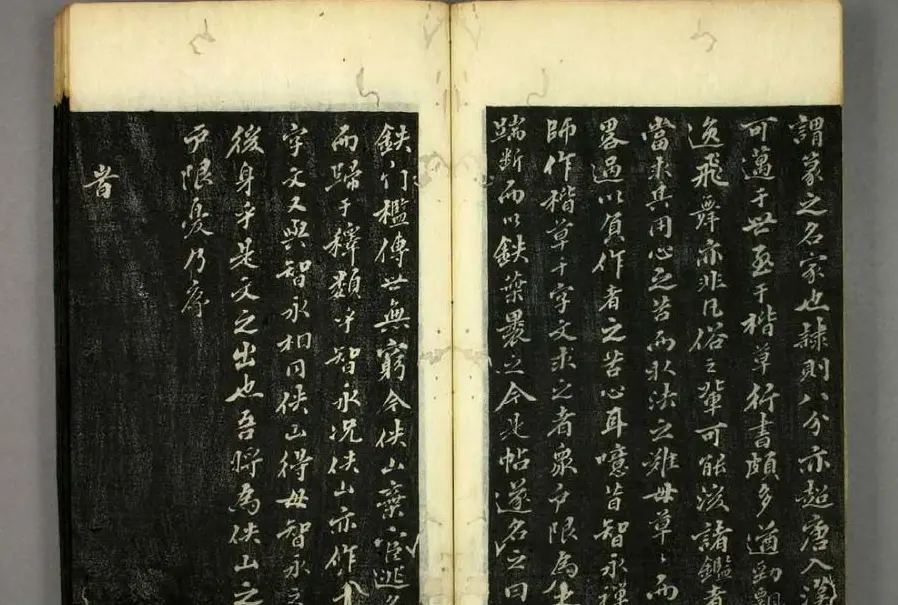 謂篆之名家也隸則八分亦超唐入漢
可萬于世至于楷草行書頗多遒勁翻
逸飛舞亦非凡俗之輩可能該諸鑑者
當求其用心之苦而水法之難毋草〻而
畧過以負作者之苦心耳噫昔智永禪
師作楷草千字文求之者衆戶限為生
踹断而以鉄葉裹之今是帖遂名之曰
鉄門檻傳世無窮今佚山棄官逃名
而歸于釋類乎智永况佚山亦作千
字文又與智永相同佚山得毋智永之
後身乎是文之出也吾將為佚山之
戶限憂乃序
旹